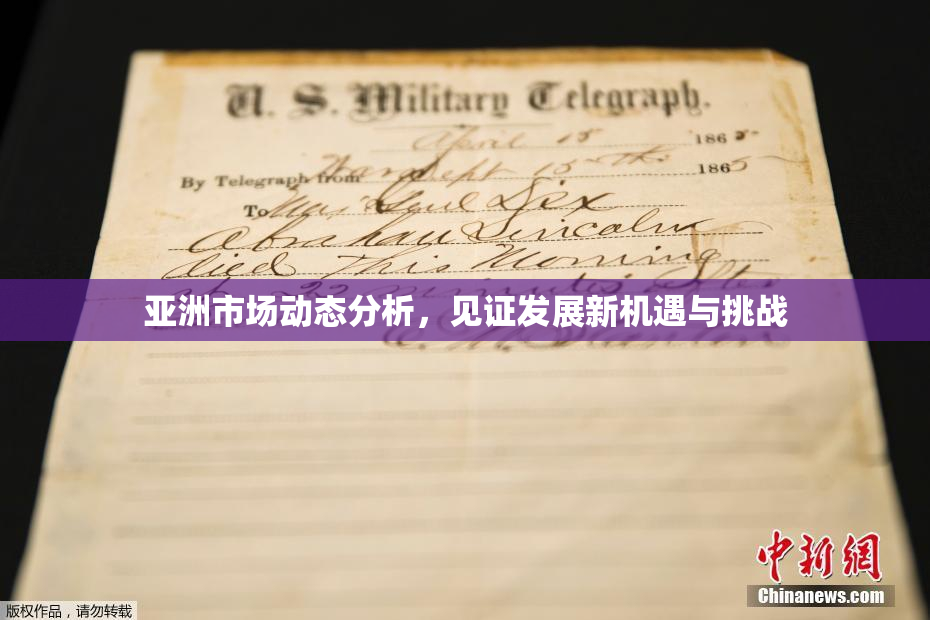 U. S. Military Telegraph.
April 15 1865
By Telegraph from Wash Sept 15th 1865
To Maj Genl Dix
Abraham Lincoln
died This Morning
at 22 minutes after
亚洲市场动态分析，见证发展新机遇与挑战
E. M. Stanton
中新網
Chinanews.com
版权作品，请勿转载